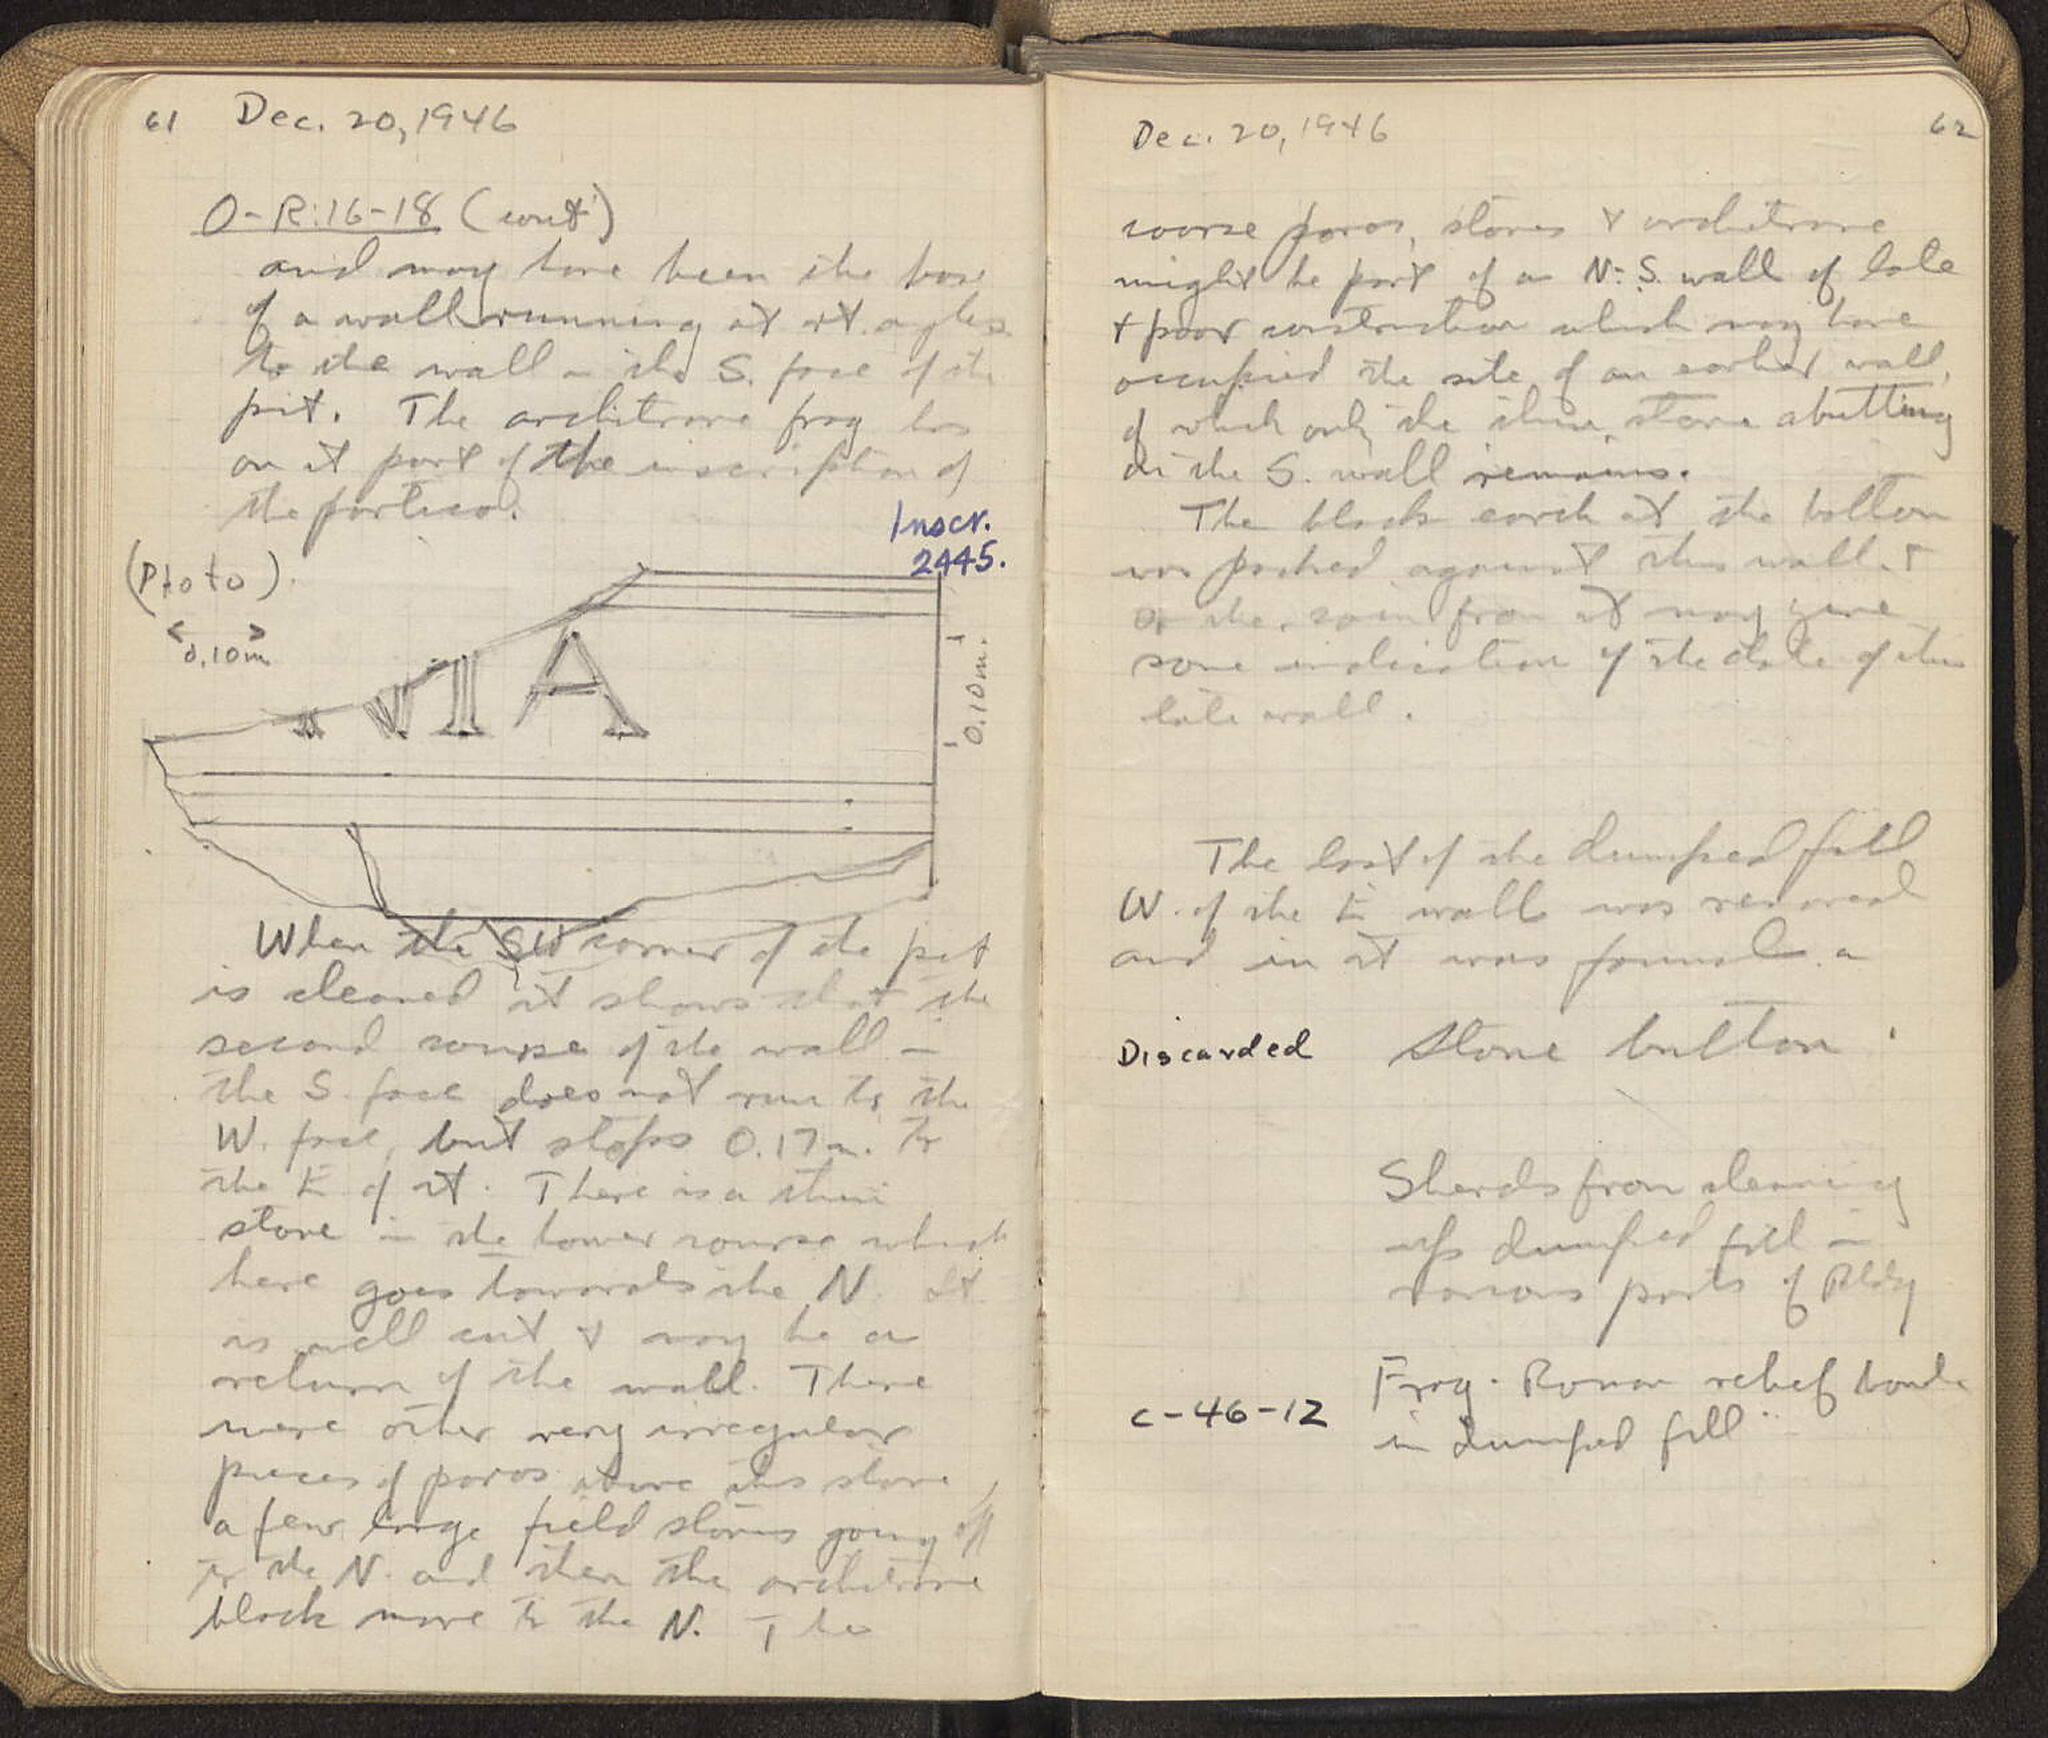 61 Dec. 20, 1946
O-R:16-18 (cont)
and may have been the base
of a wall running at rt. angles
to the wall in the S. face of the
pit. The architrave frag has
on it part of the inscription of
the portico.
Inscr.
2445.
(Photo)
0.10m
VIA
0.10m.
When the SW corner of the pit
is cleaned it shows that the
second course of the wall in
the S. face does not run to the
W. face, but stops 0.17m. to
the E of it. There is a thin
stone in the lower course which
here goes towards the N. It
is well cut & may be a
return of the wall. There
were other very irregular
pieces of poros above this stone,
a few large field stones going off
to the N. and then the architrave
block more to the N. The
Dec. 20, 1946 62
coarse poros, stones & architrave
might be part of a N-S. wall of late
& poor construction which may have
occupied the site of an earlier wall,
of which only the thin stone abutting
on the S. wall remains.
The black earth at the bottom
was packed against this wall &
so the coin from it may give
some indication of the date of this
late wall.
The last of the dumped fill
W. of the E wall was removed
and in it was found a
Discarded stone button
Sherds from cleaning
up dumped fill in
various parts of Bldg
C-46-12 Frag. Roman relief bowl
in dumped fill